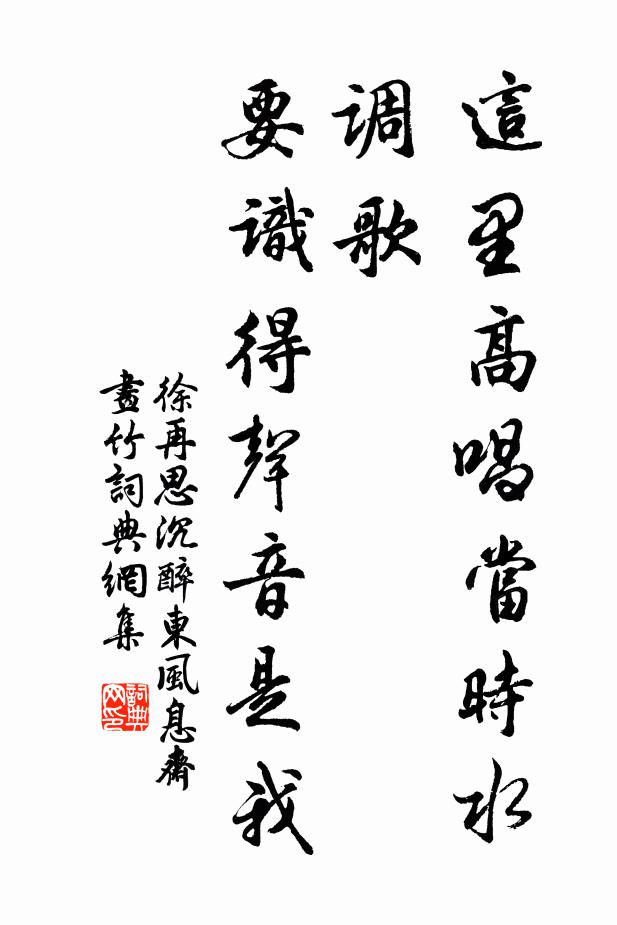 這里高唱當時水
调歌
要識得聲音是我
徐再思沉醉東風息齋
畫竹詞典網集
詞典
网印